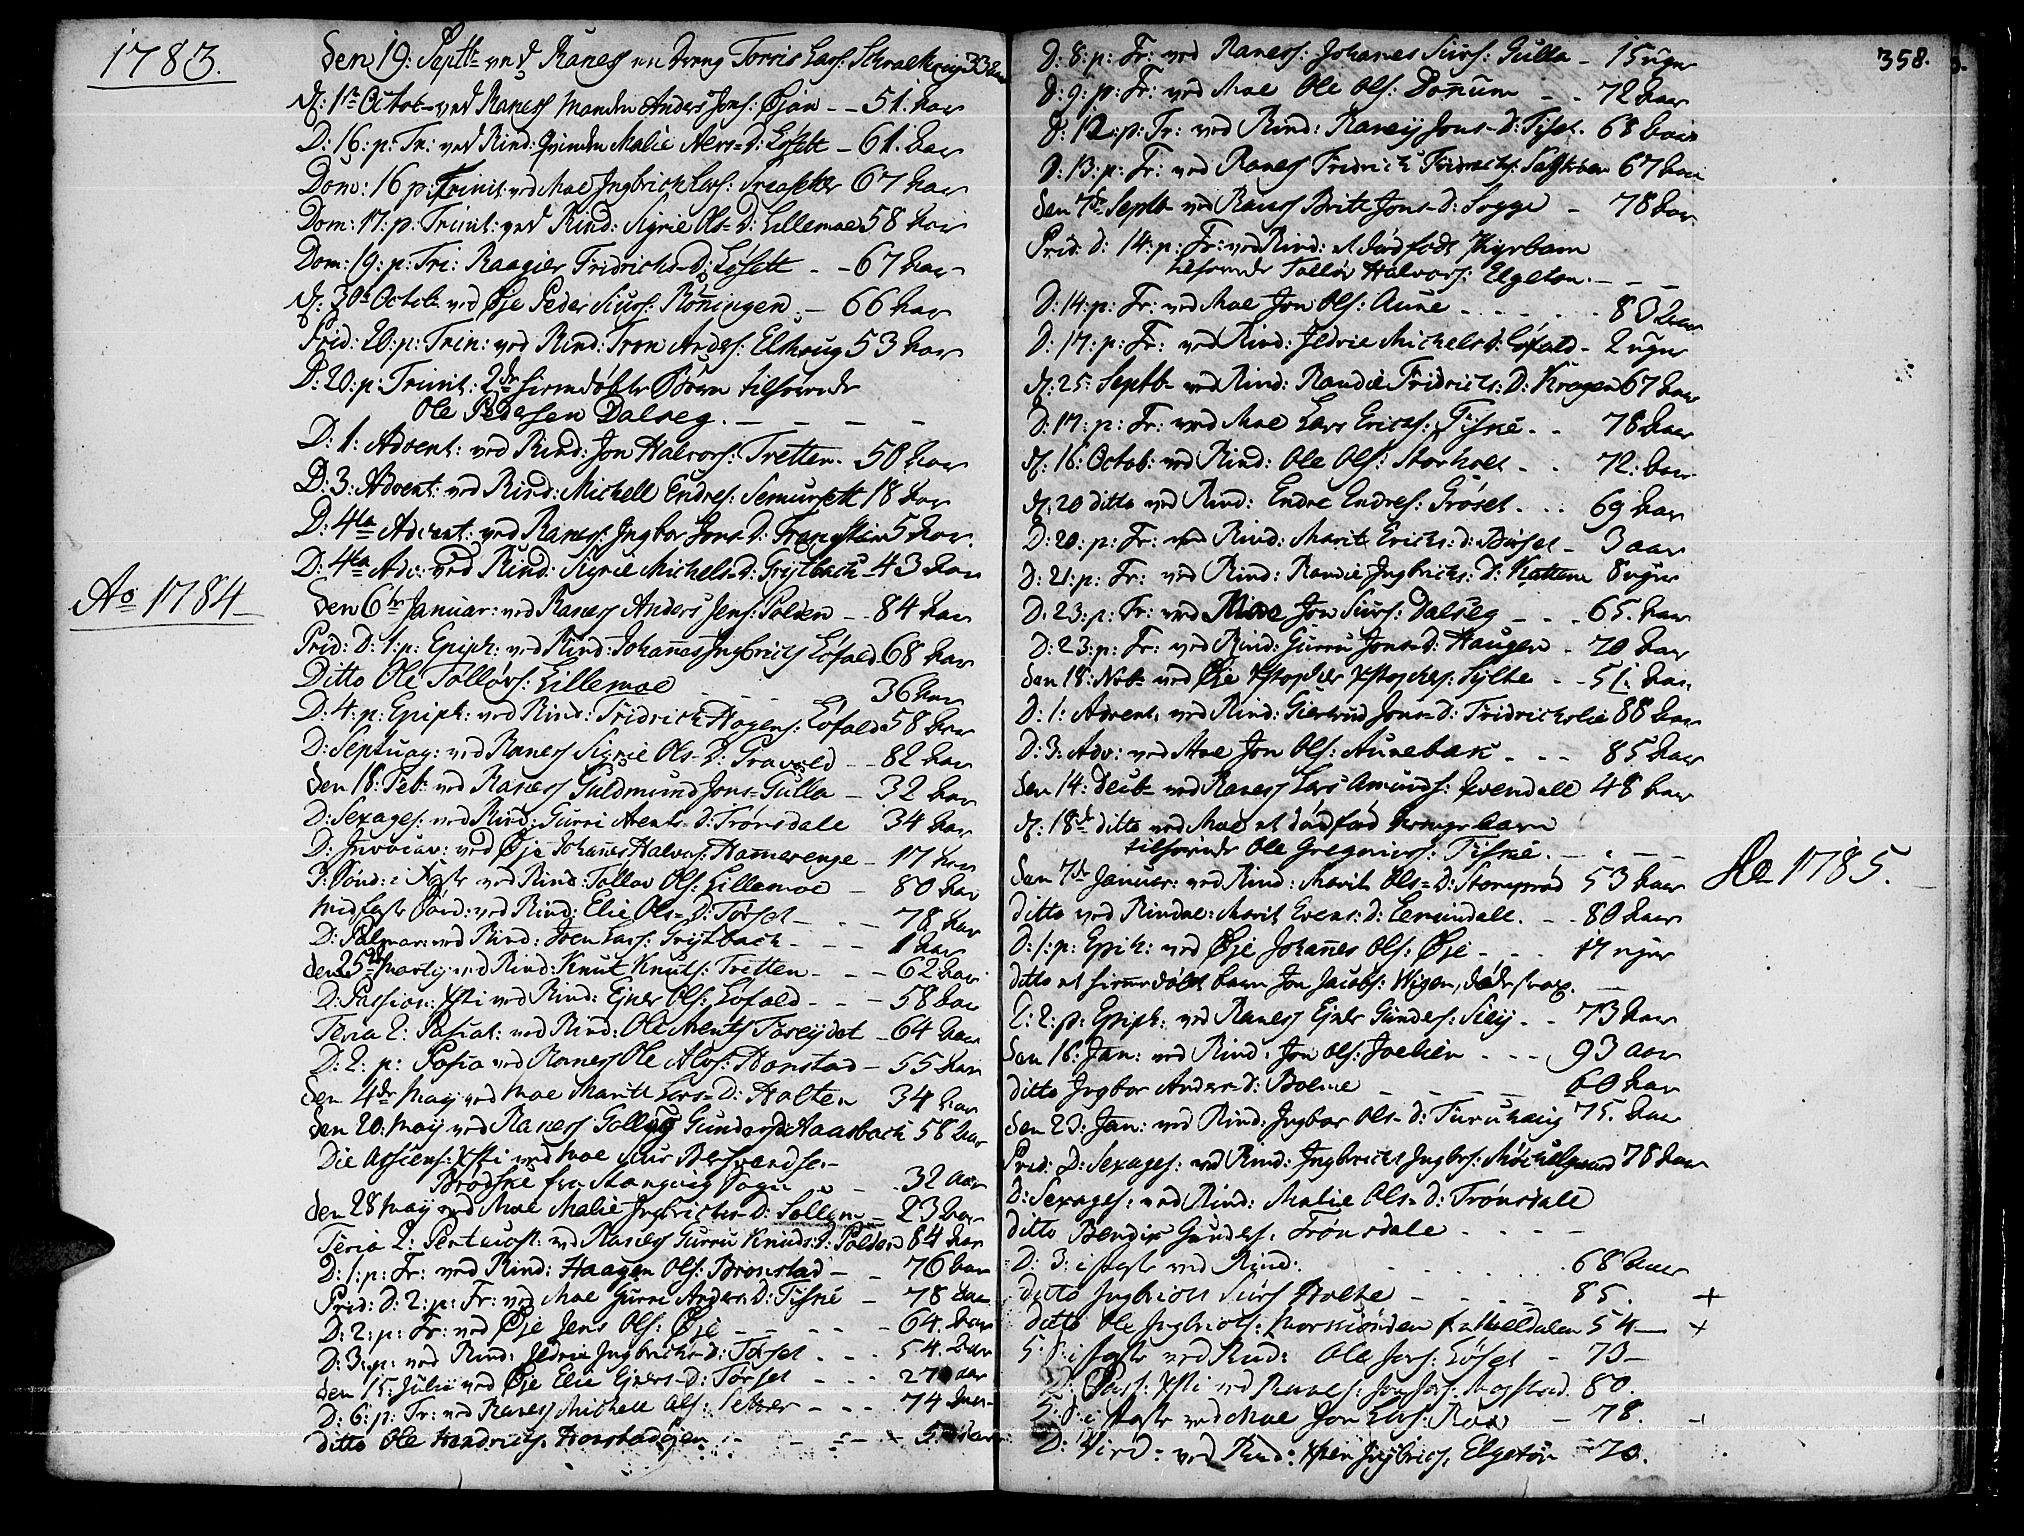 1783.
Den 19: Septb: ved Ranes en dreng Torris Lars: 33 aar
d: 1te Octob: ved Ranes Manden Anders Jons: Øjan - - 51. aar
D: 16: p: Tr: ved Rind: Qvinden Malie Aers-D: Løset - 61. aar
Dom: 16 p: Trinit: ved Moe Ingbrich Lars: 67 aar
Dom: 17: p: Trinit: ved Rind: Sigrie Ols-D: Lillemoe 58 aar
Dom: 19: p: Tri: Raagier Fridrichs-D: Løset - - 67 aar
d: 30te Octob: ved Øje Peder Siurs: Rønningen - 66 aar
Prid: 20: p: Trin: ved Rind: Tron Anders: Elshoug 53 aar
D: 20: p: Trinit: 2de hiemdøbte Børn tilhørende
Ole Pedersen Dalseg. - - - -
D: 1: Advent: ved Rind: Jon Halvors: Tretten - 50 aar
D: 3: Advent: ved Rind: Michell Endres: 18 aar
D: 4de Advent: ved Ranes: Ingbor Jons-D: 5 aar.
D: 4de Adv: ved Rind: Sigrie Michels-D: Grytbach - 43 aar
Ao 1784
Den 6te Januar: ved Ranes Anders Jens: Polden - - 84 aar
Prid: D: 1: p: Epiph: ved Rind: Johannes Ingbrichs: Løfald 68 aar
Ditto Ole Tolløvs: Lillemoe - - - 36 aar
D: 4: p: Epiph: ved Rind: Fridrich Hagens: Løfald 58 aar
D: Septuag: ved Ranes Sigrie Ols-D: Gravold - - 82 aar
Den 18: Feb: ved Ranes Guldmund Jons: Gulla - 32 aar
D: Sexages: ved Rind: Gurri Arents-D: Trønsdale 34 aar
D: Invocav: ved Øje Johannes Halvors: Hammerenge - 17 aar
3: Sønd: i Faste ved Rind: Tollov Ols: Lillemoe - 80 aar
Midfaste Sønd: ved Rind: Elie Ols-D: Tørset - - - 78 aar
D: Palmar: ved Rind: Iver Lars: Grytbach - - - 1 aar
Den 25 Marti: ved Rind: Knut Knuts: Tretten - - - 62 aar
D: Passion: Xsti ved Rind: Ejner Ols: Løfald - - - 58 aar
Feria 2: Pascat: ved Rind: Ole Arents: - 64 aar
D: 2: p: Pasca ved Ranes Ole Alvs: Honstad - 55 aar
Den 4de May ved Moe Marit Lars-D: Holten 34 aar
Den 20: Maij ved Ranes Gollaug Gunders-D: Aaasbach 58 aar
Die Assens: Xsti ved Moe Siur
fra Stangvig Sogn - - 32 aar
Den 28 Maij ved Moe Malie Ingbrichs-D: Sollem - 23 aar
Feria 2: Pentacost: ved Ranes Gurru Knuds-D: Polden 84 aar
D: 1: p: Tr: ved Rind: Haagen Ols: Bronstad - - 76 aar
Prid: D: 2: p: Tr: ved Moe Gurri Anders-D: Fiske - 78 aar
D: 2: p: Tr: ved Øje Jens Ols: Øje - - - - 64. aar
D: 3: p: ved Rind: Jldrie Ingbrichs-D: Tørset - - - 54. aar
Den 15: Julii ved Øje Elie Ejners-D: Tørset - - - 27 aar
D: 6: p: Tr: ved Ranes Michell Ols: - - - 74 aar
ditto Ole Hendrichs: Honstadøjen - - - 5 aar
358.
D: 8: p: Tr: ved Ranes: Johanes Siurs: Gulla - 15 uger
D: 9: p: Tr: ved Moe Ole Ols: Donum - - 72 aar
D: 12: p: Tr: ved Rind: Ranei Jons-D: Tiset. 68 aar
D: 13: p: Tr: ved Ranes Fridrich Fridrichs: 67 aar
Den 7de Septb: ved Ranes Brite Jons-D: Sogge - 78 aar
Prid: d: 14: p: Tr: ved Rind: et dødfødt Pigebarn
tilhørende Tolløv Halvors: Elgeton. - - -
D: 14: p: Tr: ved Moe Jon Ols: Aune - - - - - 83 aar
D: 17: p: Tr: ved Rind: Jldrie Michels-D: Løfald - 2 uger
d: 25: Septb: ved Rind: Randie Fridrichs: D: Krogen 67 aar
D: 17: p: Tr: ved Moe Lars Erichs: Fiske - - 78 aar
d: 16: Octob: ved Rind: Ole Ols: Storholt - - 72: aar
d: 20 ditto ved Rind: Endre Endres: Grøset - - : 69 aar
D: 20: p: Tr: ved Rind: Marit Erichs: d: Bøset - 3 aar
D: 21: p: Tr: ved Rind: Randie Ingbrichs: D: Katten 8 uger
D: 23: p: Tr: ved Jon Siurs: Dalseg - - - 65. aar
D: 23: p: Tr: ved Rind: Gurru Jons-D: Haugen - 70 aar
Den 18: Nob: ved Øje Xstopher Xstophers: Sylte - - 51. aar
D: 1: Advent: ved Rind: Giertrud Jons-D: Fridrichslie 88 aar
D: 3: Adv: ved Moe Jon Ols: Aunebak - - - 85. aar
Den 14: Decb: ved Ranes Lars Amunds: Qvendall 48 aar
d: 18de ditto ved Moe et dødfød drengebarn
tilhørende Ole Gregorius: Fiske. - - -
Ao 1785.
Den 7de Januar: ved Rind: Marit Ols-D: 53 aar
ditto ved Rindal: Marit Evens: d: Lemundall. - - 80 aar
D: 1: p: Epiph: ved Øje Johannes Ols: Øje - - - 17 uger
ditto et hiemedøbt barn Jon Jacobs: Wigen, døde strax. -
D: 2: p: Epiph: ved Ranes Ejner Gundes: - - 73 aar
Den 16: Jan: ved Rind: Jon Ols: - - - 93 aar
ditto Ingbor Anders-D: Bolme - - - - 60 aar
Den 23: Jan: ved Rind: Ingbor Ols-d: Furuhaug 75. aar
Prid: D: Sexages: ved Rind: Ingbricht Ingbrs: 78 aar
D: Sexages: ved Rind: Malie Ols-D: Trønsdale
ditto Bendix Gundes: Trønsdale - - - -
D: 3: i faste ved Rind: - - - 68 aar
ditto Ingbricth Siurs Holte - - - - 85. +
Ditto Ole Ingbricts: 54 - +
5: S: i faste ved Rind: Ole Jons: Løset - 73 -
D: Pass: Xsti ved Ranes: Jon Jons: 80.
5: S: i faste ved Moe Jon Lars: Røv - 78. -
D: Virid: ved Rind: Sten Ingbrics: Elgetøn - 70.